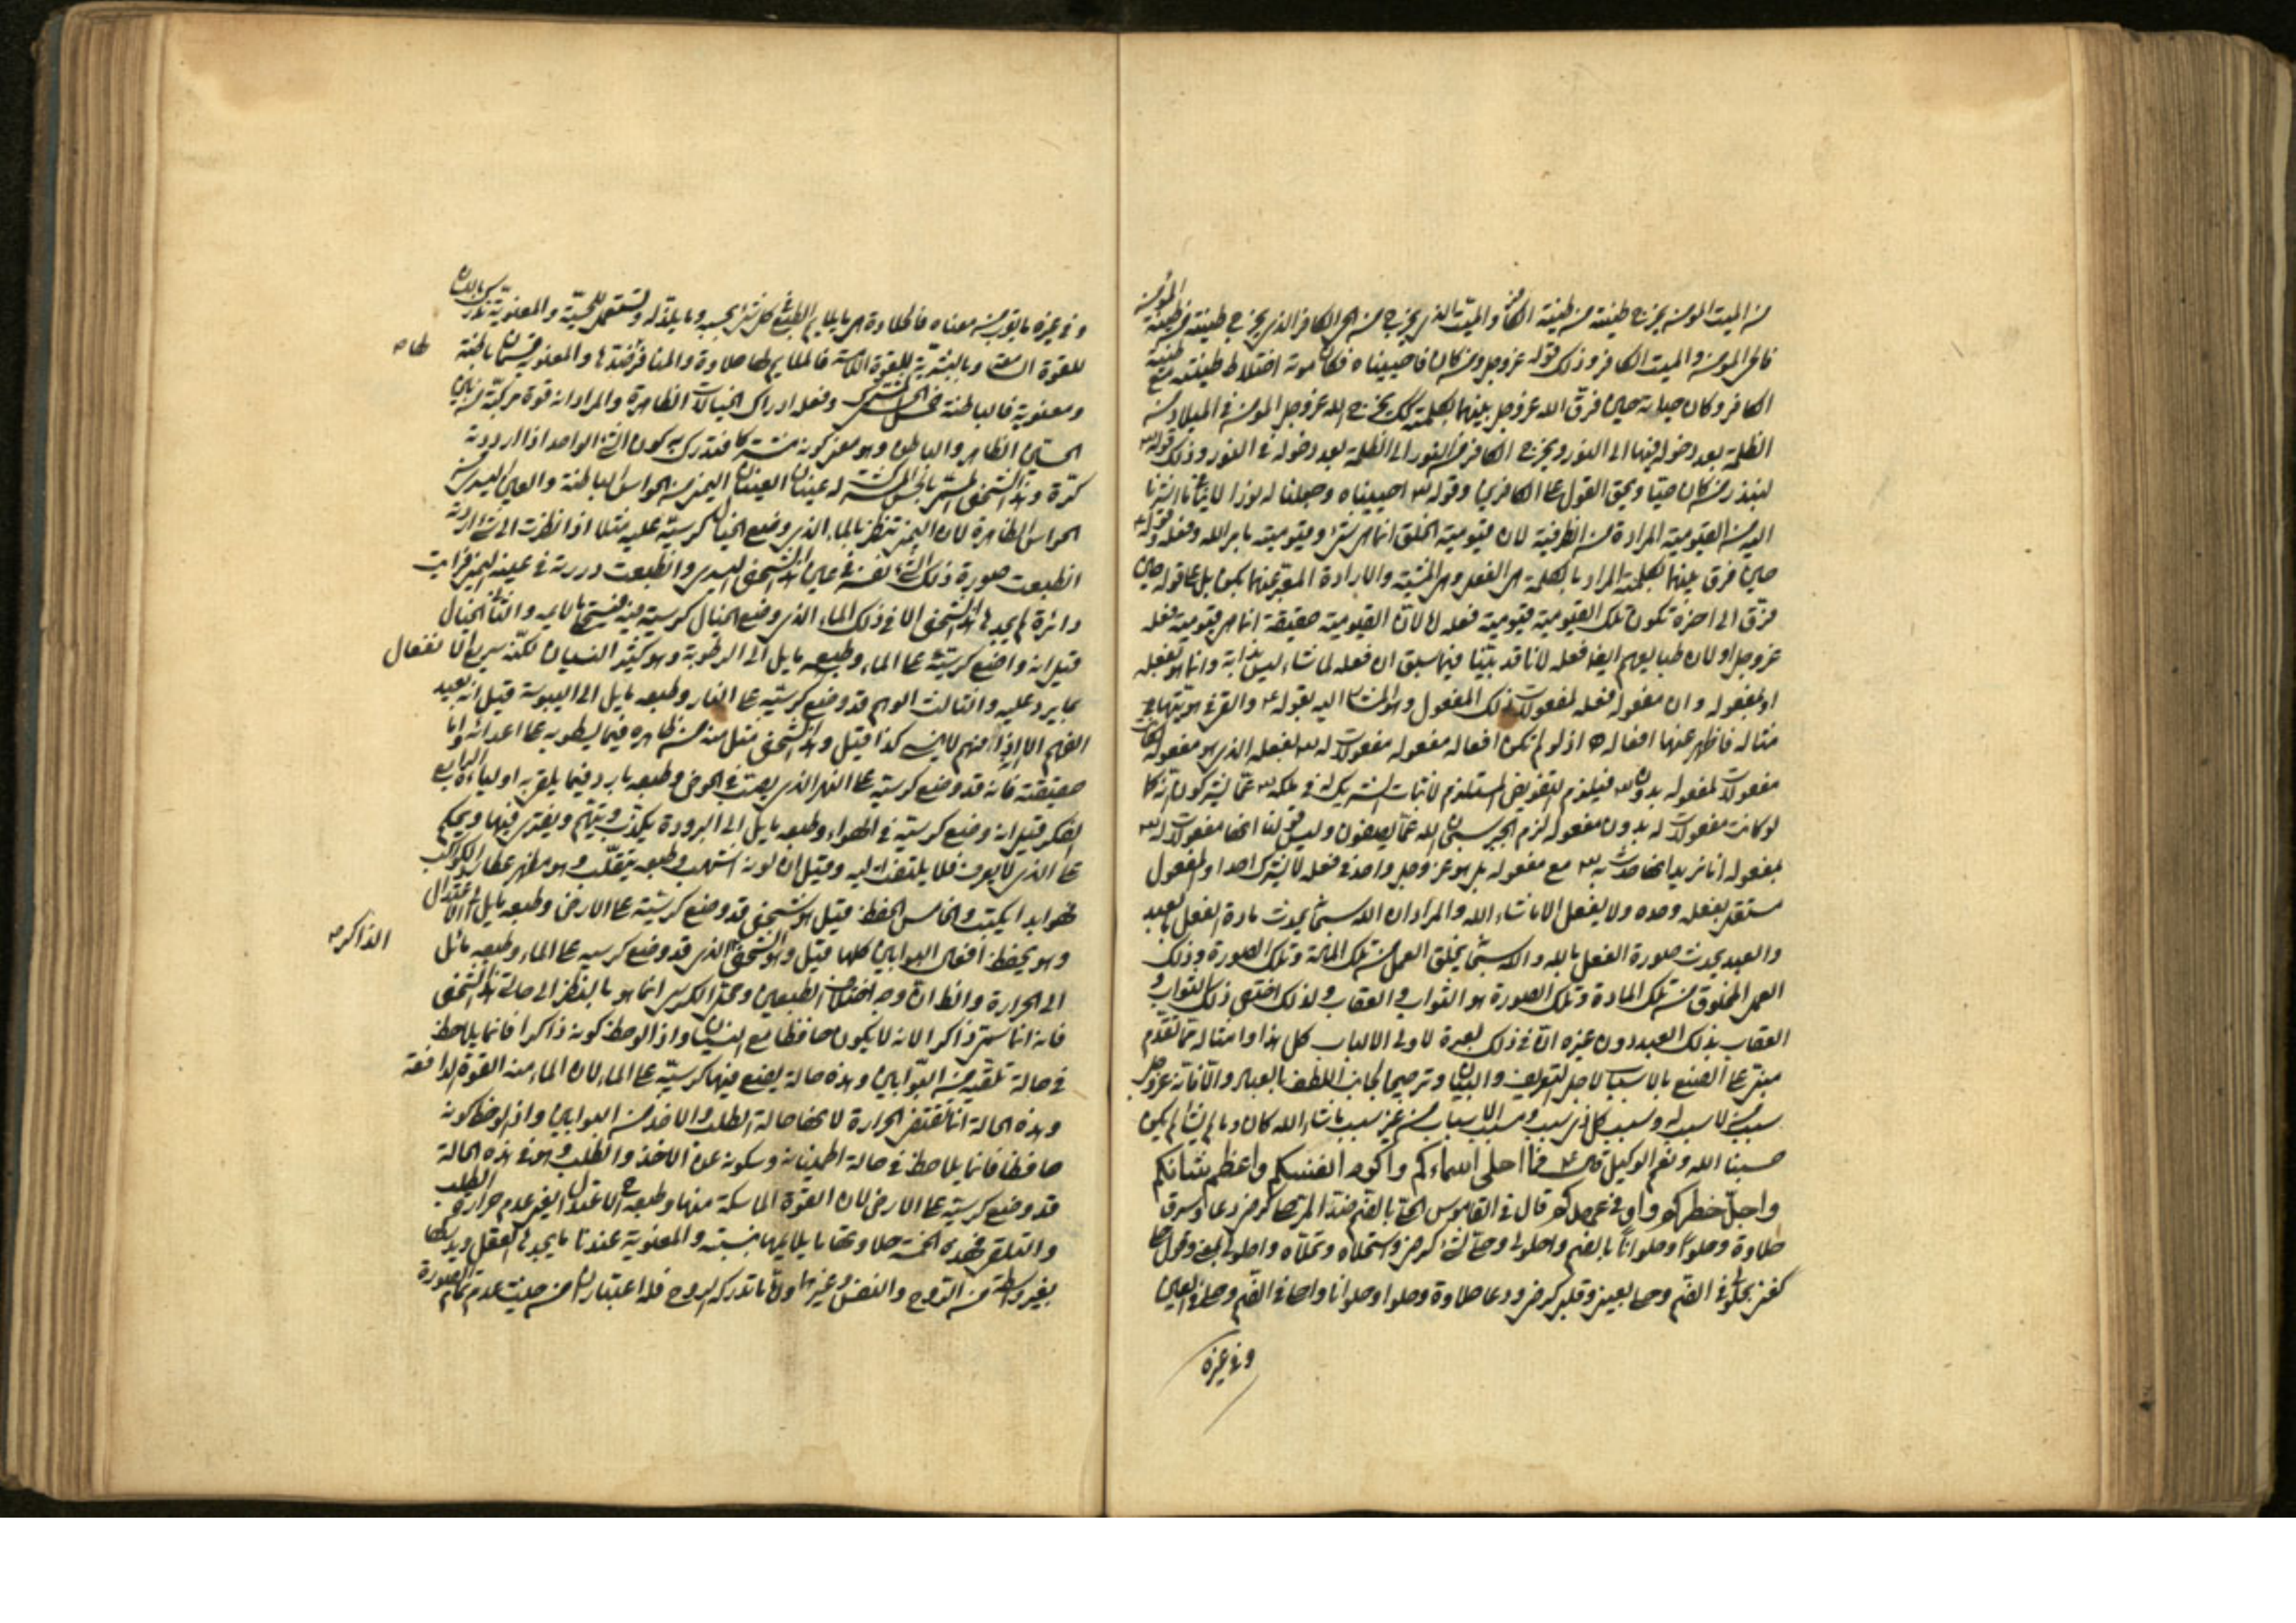 من الميت المؤمن يخرج طينته من طينة الكافر والميت الذي يخرج من الحي الكافر الذي يخرج طينته من طينة المؤمن
فالحي المؤمن والميت الكافر وذلك قوله عز وجل ومن كان فاحييناه فكان موته اختلاط طينته مع طينة
الكافر وكان حياته حين فرق الله عز وجل بينهما بكلمته كذلك يخرج الله عز وجل المؤمن في الميلاد من
الظلمة بعد دخوله فيها الى النور ويخرج الكافر من النور الى الظلمة بعد دخوله في النور وذلك قوله
لينذر من كان حيا ويحق القول على الكافرين وقوله احييناه وجعلنا له نورا
القيومية المرادة من الظرفية لان قيومية الخلق انما هي بشيء وقيوميته بامر الله وفعله وقوله
حين فرق بينهما بكلمته المراد بالكلمة هي الفعل وهي المشية والارادة المعبر عنهما بكن بل على قوله حين
فرق الى اخره تكون تلك القيومية قيومية فعله لان القيومية حقيقة انما هي قيومية فعله
عز وجل او لان طبايعهم ايضا فعله لانا قد بينا فيما سبق ان فعله لما شاء ليس بذاته وانما هو بفعله
او بمفعوله وان مفعول فعله لمفعولات ذلك المفعول والاشارة اليه بقوله والقى في هويتها
مثاله فاظهر عنها افعاله اذ لو لم تكن افعاله مفعوله مفعولات له بفعله الذي هو مفعوله لكان
مفعولات لمفعوله بدونه فيلزم التفويض المستلزم لاثبات الشريك في ملكه عما يشركون
لو كانت مفعولات له بدون مفعوله لزم الجبر سبحان الله عما يصفون وليس قولنا انها مفعولات له
بمفعوله انا نريد انها حدثت به مع مفعوله بل هو عز وجل واحد في فعله لا يشرك احدا ولا مفعول
مستقل بفعله وحده ولا يفعل الا ما شاء الله والمراد ان الله سبحانه يحدث مادة الفعل بالعبد
والعبد يحدث صورة الفعل بالله والله سبحانه يخلق العمل من تلك المادة وتلك الصورة وذلك
العمل المخلوق من تلك المادة وتلك الصورة هو الثواب والعقاب ولذلك اختص ذلك الثواب و
العقاب بذلك العبد دون غيره ان في ذلك لعبرة لاولي الالباب كل هذا وامثاله مما تقدم
مبني على الصنع بالاسباب لاجل التعريف والبيان وترجيحا لجانب اللطف بالعباد والا فانه عز وجل
سبب من لا سبب له وسبب كل ذي سبب ومسبب الاسباب من غير سبب ما شاء الله كان وما لم يشأ لم يكن
حسبنا الله ونعم الوكيل قال فما احلى اسماءكم واكرم انفسكم واعظم شانكم
واجل خطركم واوفى عهدكم قال في القاموس الحلو بالضم ضد المر حلا كرضي ودعا وسرو
حلاوة وحلوا وحلوانا بالضم واحلولى وحلي الشيء كرضي واستحلاه وتحلاه واحلولاه بمعنى وقول حلي
كغني يحلو في الفم وحلي بعيني وقلبي كرضي ودعا حلاوة وحلوا وحلوانا او حلا في الفم وحلي في العين
وفي غيره
وفي غيره ما يقرب من معناه فالحلاوة هي ما يلايم الطبع كل شيء بحسبه وما يلتذ له وتستعمل للحسية والمعنوية
للقوة وبالبشرية للقوة اللامسة فالملايم لها حلاوة والمنافر ضدها والمعنوية قسمان باطنة
ظاهـ
ومعنوية فالباطنة فعل الحس المشترك وفعله ادراك الخيالات الظاهرة والمراد انه قوة مركبة من بين
الحسين الظاهر والباطن وهو معنى كونه مشتركا فتدرك به كون الشيء الواحد اذا ادرته
كرة وهذا الشخص المسمى بالحس المشترك له عينان العين اليمنى من الحواس الباطنة والعين اليسرى من
الحواس الظاهرة لان اليمنى تنظر بالماء الذي وضع الخيال كرسيه عليه مثلا اذا نظرت الى شيء ادرته
انطبعت صورة ذلك الشيء نفسه في عين هذا الشخص اليسرى وانطبعت دورته في عينه اليمنى فرايت
دائرة لم يجدها هذا الشخص الا في ذلك الماء الذي وضع الخيال كرسيه فيه والثاني الخيال
قيل انه واضع كرسيه على الماء وطبعه مايل الى الرطوبة وهو كثير النسيان لكنه سريع الانفعال
بما يرد عليه والثالث الوهم قد وضع كرسيه على النار وطبعه مايل الى اليبوسة قيل انه بعيد
الفهم الا اذا فهم لا ينسى كذا قيل وهذا الشخص
حقيقته فانه قد وضع كرسيه على النهر الذي يصب في الحوض وطبعه بارد فيما يلقى به اولياءه الرابع
الفكر قيل انه وضع كرسيه في الهواء وطبعه مايل الى البرودة يكذب ويتهم ويفتري فيها ويحكم
على الذي لا يعرف فلا يلتفت اليه وقيل ان لونه اشهب وطبعه يتقلب وهو مظهر عطارد الكوكب
فهو ابدا يكتب والخامس الحفظ قيل هو شخص قد وضع كرسيه على الارض وطبعه مايل الى الاعتدال
وهو يحفظ افعال البوابين كلها قيل وهو الشخص الذي قد وضع كرسيه على الماء وطبعه مائل
الذاكر
الى الحرارة والظاهر ان وجه اختلاف الطبعين ومحل الكرسي انما هو بالنظر الى حالتي هذا الشخص
فانه انما سمي ذاكرا لانه لا يكون حافظا مع النسيان واذا لوحظ كونه ذاكرا فانما يلاحظ
في حالة تلقيه من البوابين وهذه حالة يضع فيها كرسيه على الماء لان الماء منه القوة الدافعة
وهذه الحالة انما تقتضي الحرارة لانها حالة الطلب والاخذ من البوابين واذا لوحظ كونه
حافظا فانما يلاحظ في حالة اطمينانه وسكونه عن الاخذ والطلب وهو في هذه الحالة
قد وضع كرسيه على الارض لان القوة الماسكة منها وطبعه الاعتدال لعدم حرارة الطلب
والتلقي فهذه الخمسة حلاوتها ما يلايمها بنسبته والمعنوية عندنا ما يجدها العقل ويدركها
بغير واسطة من الروح والنفس وغيرها واما ما تدركه الروح فله اعتباران من حيث عدم تمام الصورة